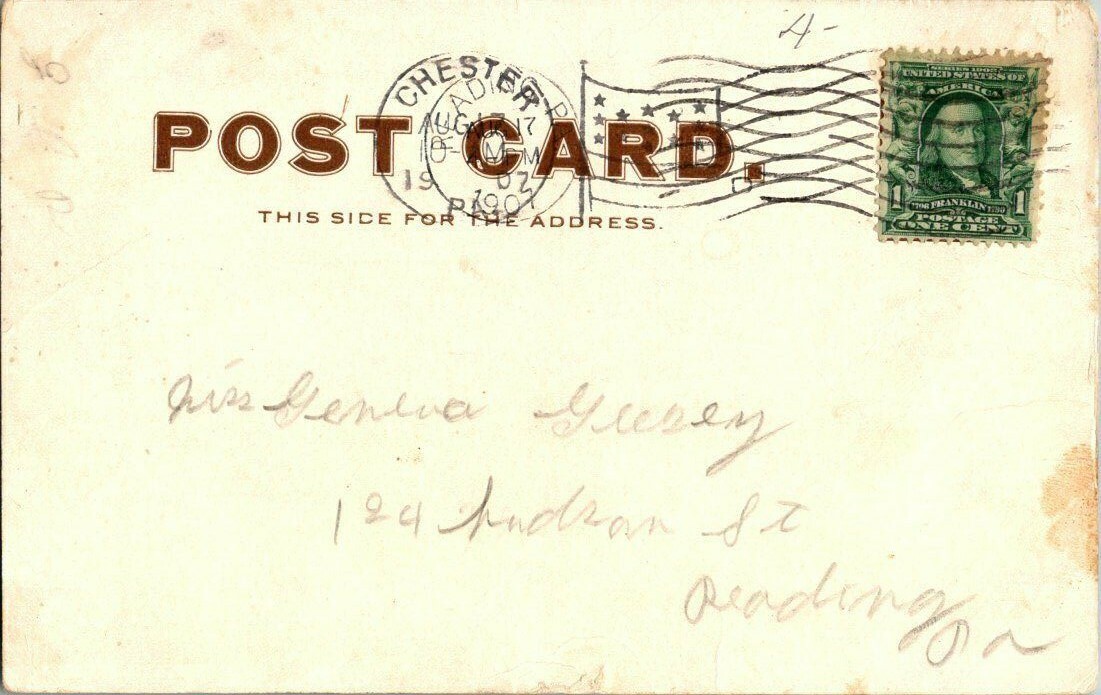 4-
CHESTER
READING P
AUG 17
1907
PA
POST CARD.
THIS SIDE FOR THE ADDRESS.
SERIES 1902
UNITED STATES OF
AMERICA
1706 FRANKLIN 1790
1 POSTAGE 1
ONE CENT
D
Miss Geneva Geesey
124 Hudson St
Reading
Pa